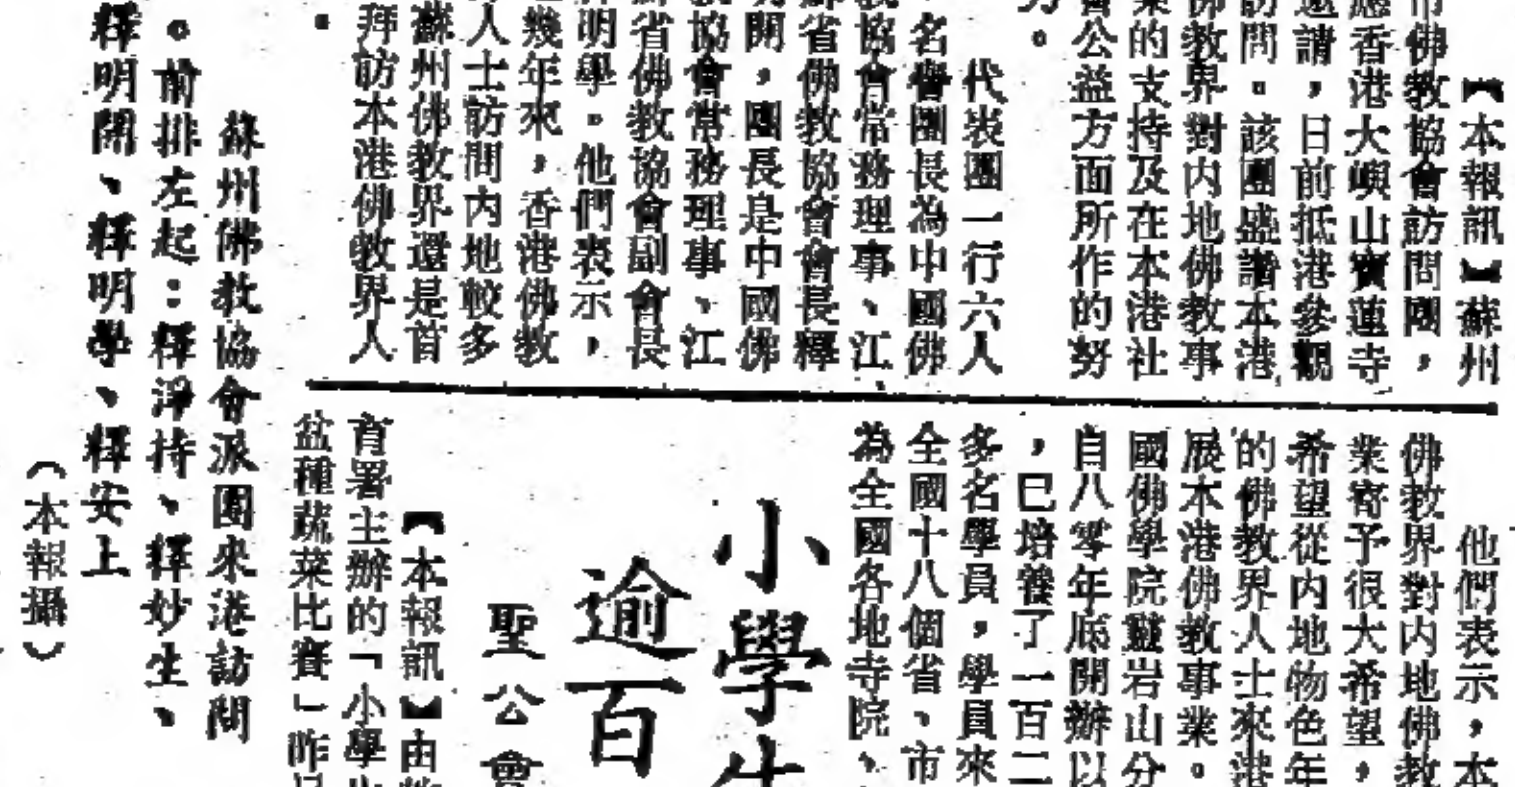 【本報訊】蘇州
市佛教協會訪問團，
應香港大嶼山寶蓮寺
邀請，日前抵港參觀
訪問。該團盛讚本港
佛教界對内地佛教事
業的支持及在本港社
會公益方面所作的努
力。
代表團一行六人
，名譽團長為中國佛
教協會常務理事、江
蘇省佛教協會會長釋
明開，團長是中國佛
教協會常務理事、江
蘇省佛教協會副會長
釋明學。他們表示，
近幾年來，香港佛教
界人士訪問内地較多
，蘇州佛教界還是首
拜訪本港佛教界人
。
他們表示，本
佛教界對内地佛教
業寄予很大希望，
希望從内地物色年
的佛教界人士來港
展本港佛教事業。
國佛學院靈岩山分
自八零年底開辦以
，已培養了一百二
多名學員，學員來
全國十八個省、市
為全國各地寺院、
蘇州佛教協會派團來港訪問
。前排左起：釋淨持、釋妙生、
釋明開、釋明學、釋安上
（本報攝）
小學生
逾百
聖公會
【本報訊】由
育署主辦的「小學
盆種蔬菜比賽」昨